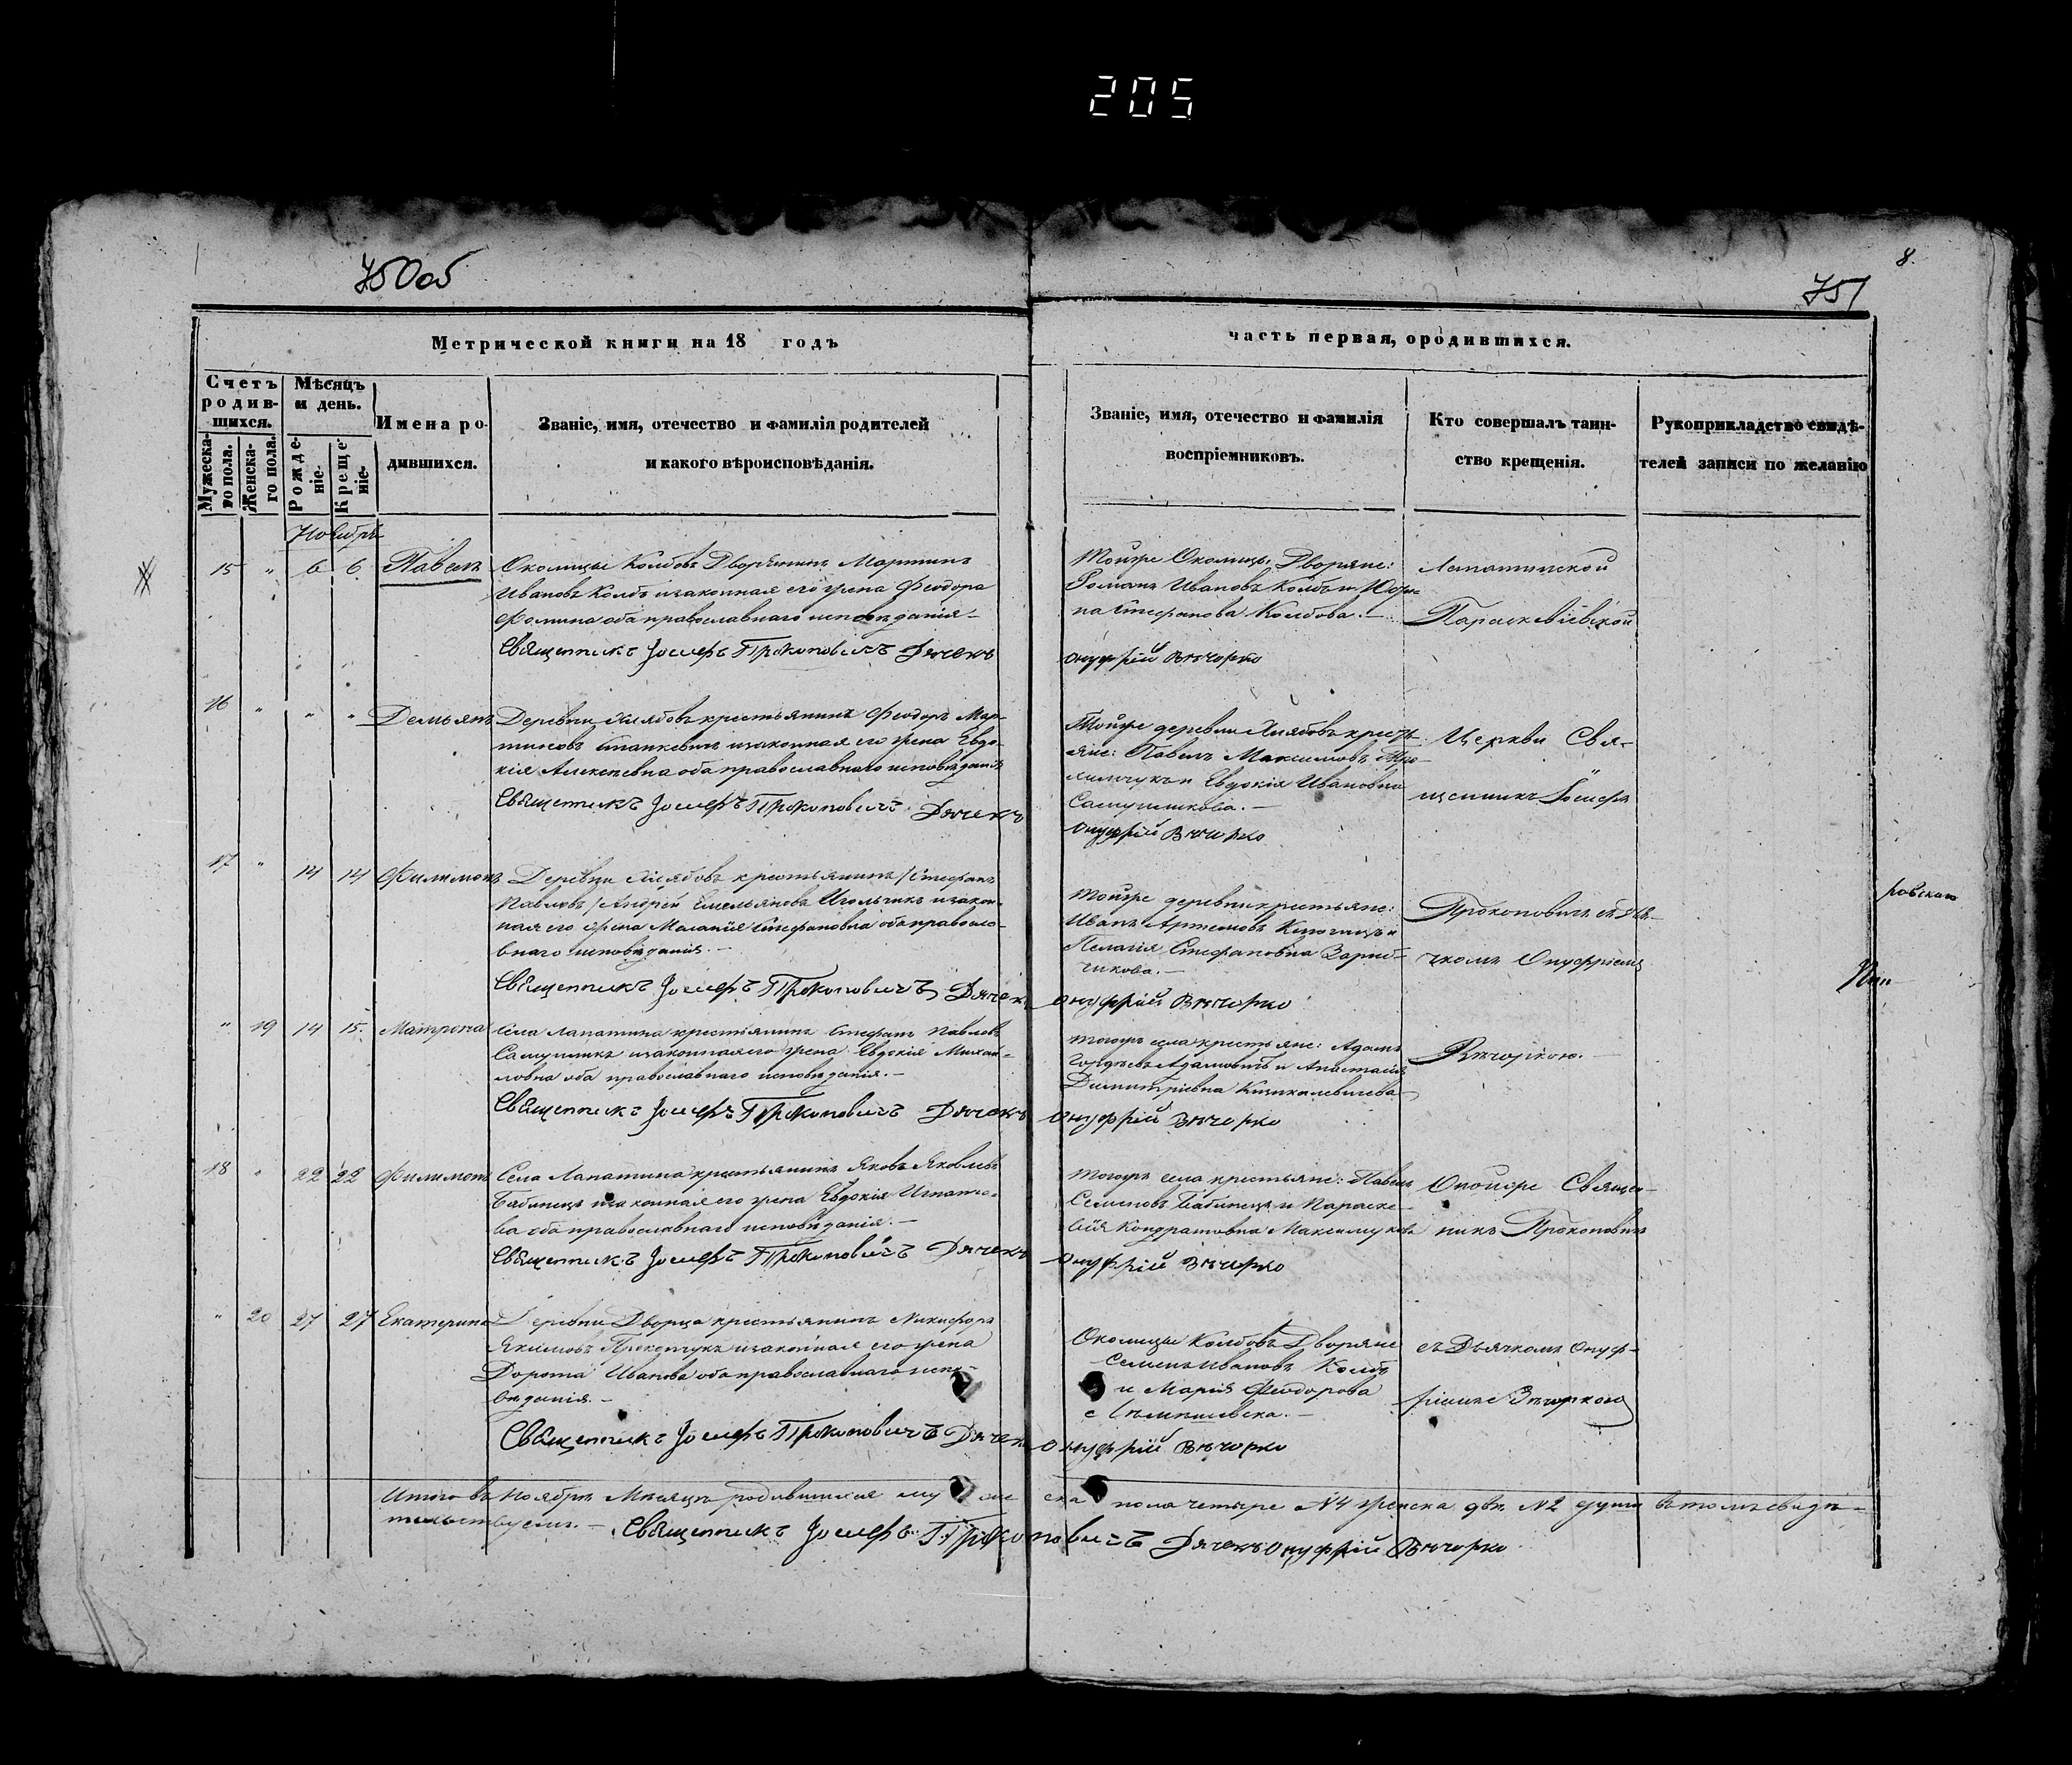 205
750об
8.
751
Метрической книги на 18 годъ
часть первая, ородившихся.
Счетъ родив-шихся.
Мужеска-го пола.
Женска-го пола.
Мѣсяцъ и день.
Рожде-ніе.
Креще-ніе.
Имена ро-
дившихся.
Званіе, имя, отечество и фамилія родителей
и какого вѣроисповѣданія.
Званіе, имя, отечество и фамилія
воспріемниковъ.
Кто совершалъ таин-
ство крещенія.
Рукоприкладство свидѣ-
телей записи по желанію
Ноября
15 " 6 6 Павелъ
Околицы Колбовъ Дворянинъ Мартинъ
Ивановъ Колбъ изаконная его жена Феодора
Фомина оба православнаго исповѣданія
Священникъ Іосифъ Прокоповичъ Дячекъ
Тойже Околицы, Дворяне:
Романъ Ивановъ Колбъ и
на Стефанова Колбова. —
Онуфрій Вѣчорко
Лапатинской
Параскевіевской
16 " " " Демьянъ
Деревни крестьянинъ Феодоръ Мар-
тиновъ Станкевичъ изаконная его жена Евдо-
кія Алексеевна оба православнаго исповѣданія
Священникъ Іосифъ Прокоповичъ Дячекъ
Тойже деревни крестья-
яне: Павелъ Максимовъ
и Евдокія Ивановна
Онуфрій Вѣчорко
Церкви Свя-
щенникъ Іосифъ
17 " 14 14 Филимонъ
Деревни крестьянинъ /Стефанъ
Павловъ/ Андрей Емельяновъ Игольчикъ изакон-
ная его жена Маланія Стефановна оба правосла-
внаго исповѣданія. —
Священникъ Іосифъ Прокоповичъ Дячекъ
Тойже деревни крестьяне:
Иванъ Артемовъ и
Пелагія Стефановна
чикова. —
Онуфрій Вѣчорко
Прокоповичъ съ Дья-
чкомъ Онуфріемъ
" 19 14 15. Матрона
Села Лапатина крестьянинъ Стефанъ Павловъ
изаконная его жена Евдокія Михай-
ловна оба православнаго исповѣданія. —
Священникъ Іосифъ Прокоповичъ Дячекъ
Тогожъ села крестьяне: Адамъ
Гордѣевъ Адамовичъ и Анастасія
Димитріевна
Онуфрій Вѣчорко
Вѣчоркою. —
18 " 22 22 Филимонъ
Села Лапатина крестьянинъ Яковъ Яковлевъ
Бабинецъ изаконная его жена Евдокія Игнатьe-
ва оба православнаго исповѣданія. —
Священникъ Іосифъ Прокоповичъ Дячекъ
Тогожъ села крестьяне: Павелъ
Семеновъ Бабинецъ и Параске-
вія Кондратовна Максимукова
Онуфрій Вѣчорко
Онойже Священ-
никъ Прокоповичъ
" 20 27 27 Екатерина
Деревни Дворца крестьянинъ Никифоръ
Якимовъ изаконная его жена
Дорота Иванова оба православнаго испо-
вѣданія. —
Священникъ Іосифъ Прокоповичъ Дячекъ
Околицы Колбовъ Дворяне
Семенъ Ивановъ Колбъ
и Марія Феодорова
Онуфрій Вѣчорко
съ Дьячкомъ Онуф-
ріемъ Вѣчоркою
Итого въ Ноябрѣ Мѣсяцѣ родившихся мужеска пола четыре №4 женска двѣ №2 души въ томъ свидѣ-
тельствуемъ. — Священникъ Іосифъ Прокоповичъ Дячекъ Онуфрій Вѣчорко